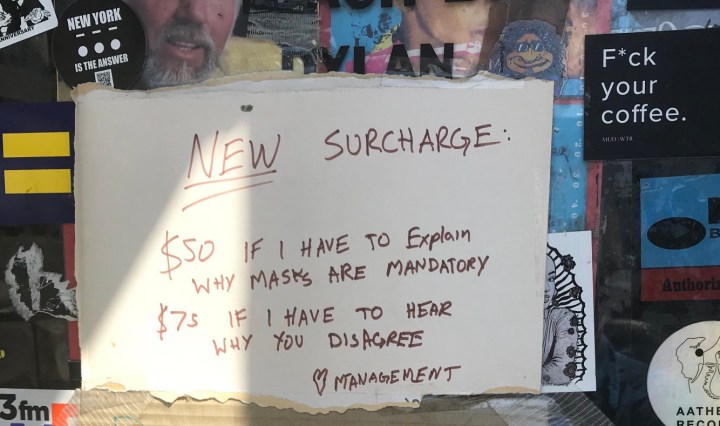 NEW YORK
IS THE ANSWER
YLAN
F*ck
your
coffee.
MUD\WTR
NEW SURCHARGE:
$50 IF I HAVE TO Explain
WHY MASKS ARE MANDATORY
$75 IF I HAVE TO HEAR
WHY YOU DISAGREE
♡ MANAGEMENT
3fm